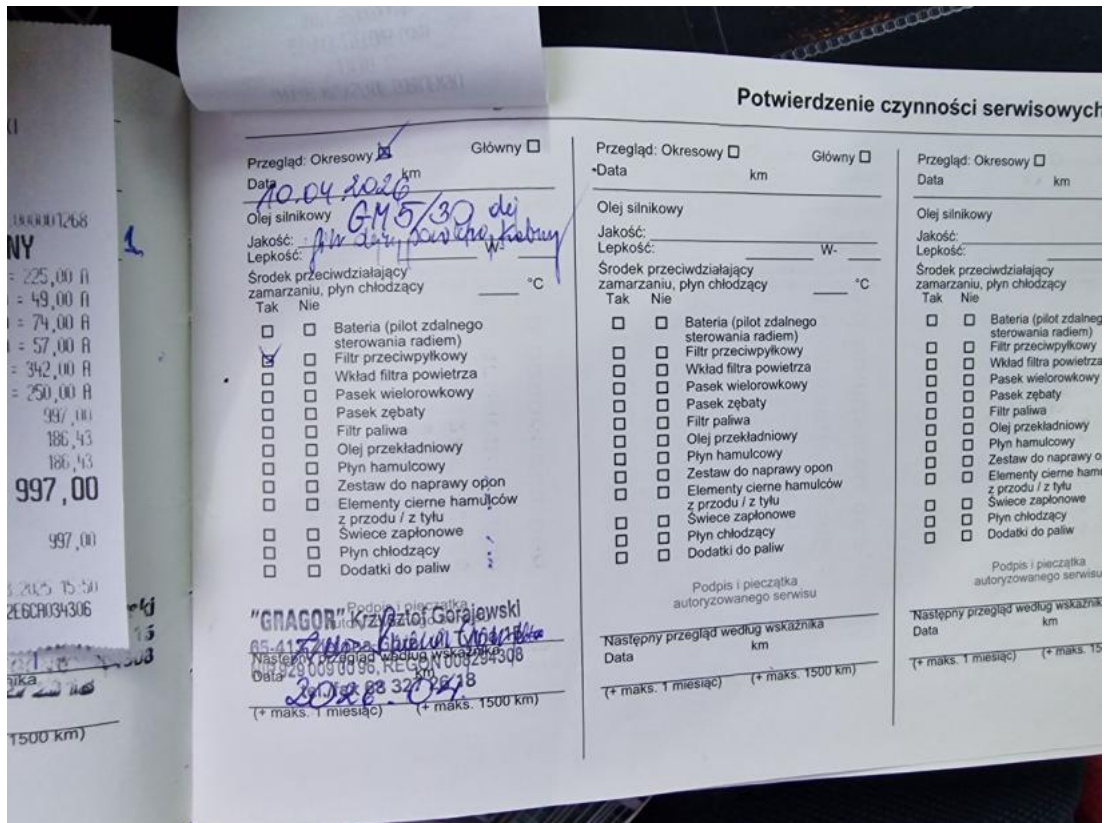 000001268
NY
= 225,00 A
= 49,00 A
= 74,00 A
= 57,00 A
= 342,00 A
= 250,00 A
997,00
186,43
186,43
997,00
997,00
2025 15:50
2E6CA034306
1500 km)
Potwierdzenie czynności serwisowych
Przegląd: Okresowy Główny
Data km
10.04.2026
Olej silnikowy GM 5/30
Jakość:
Lepkość: W-
Środek przeciwdziałający
zamarzaniu, płyn chłodzący °C
Tak Nie
Bateria (pilot zdalnego
sterowania radiem)
Filtr przeciwpyłkowy
Wkład filtra powietrza
Pasek wielorowkowy
Pasek zębaty
Filtr paliwa
Olej przekładniowy
Płyn hamulcowy
Zestaw do naprawy opon
Elementy cierne hamulców
z przodu / z tyłu
Świece zapłonowe
Płyn chłodzący
Dodatki do paliw
Podpis i pieczątka
"GRAGOR" Krzysztof Gorajewski
Następny przegląd według wskaźnika
REGON 008294308
Data km
(+ maks. 1 miesiąc) (+ maks. 1500 km)
Przegląd: Okresowy Główny
Data km
Olej silnikowy
Jakość:
Lepkość: W-
Środek przeciwdziałający
zamarzaniu, płyn chłodzący °C
Tak Nie
Bateria (pilot zdalnego
sterowania radiem)
Filtr przeciwpyłkowy
Wkład filtra powietrza
Pasek wielorowkowy
Pasek zębaty
Filtr paliwa
Olej przekładniowy
Płyn hamulcowy
Zestaw do naprawy opon
Elementy cierne hamulców
z przodu / z tyłu
Świece zapłonowe
Płyn chłodzący
Dodatki do paliw
Podpis i pieczątka
autoryzowanego serwisu
Następny przegląd według wskaźnika
Data km
(+ maks. 1 miesiąc) (+ maks. 1500 km)
Przegląd: Okresowy
Data km
Olej silnikowy
Jakość:
Lepkość:
Środek przeciwdziałający
zamarzaniu, płyn chłodzący
Tak Nie
Bateria (pilot zdalneg
sterowania radiem)
Filtr przeciwpyłkowy
Wkład filtra powietrza
Pasek wielorowkowy
Pasek zębaty
Filtr paliwa
Olej przekładniowy
Płyn hamulcowy
Zestaw do naprawy o
Elementy cierne ham
z przodu / z tyłu
Świece zapłonowe
Płyn chłodzący
Dodatki do paliw
Podpis i pieczątka
autoryzowanego serwisu
Następny przegląd według wskaźnik
Data km
(+ maks. 1 miesiąc) (+ maks. 15